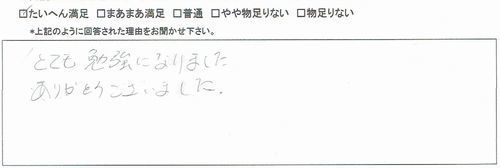 ☑たいへん満足 □まあまあ満足 □普通 □やや物足りない □物足りない
*上記のように回答された理由をお聞かせ下さい。
とても勉強になりました
ありがとうございました。